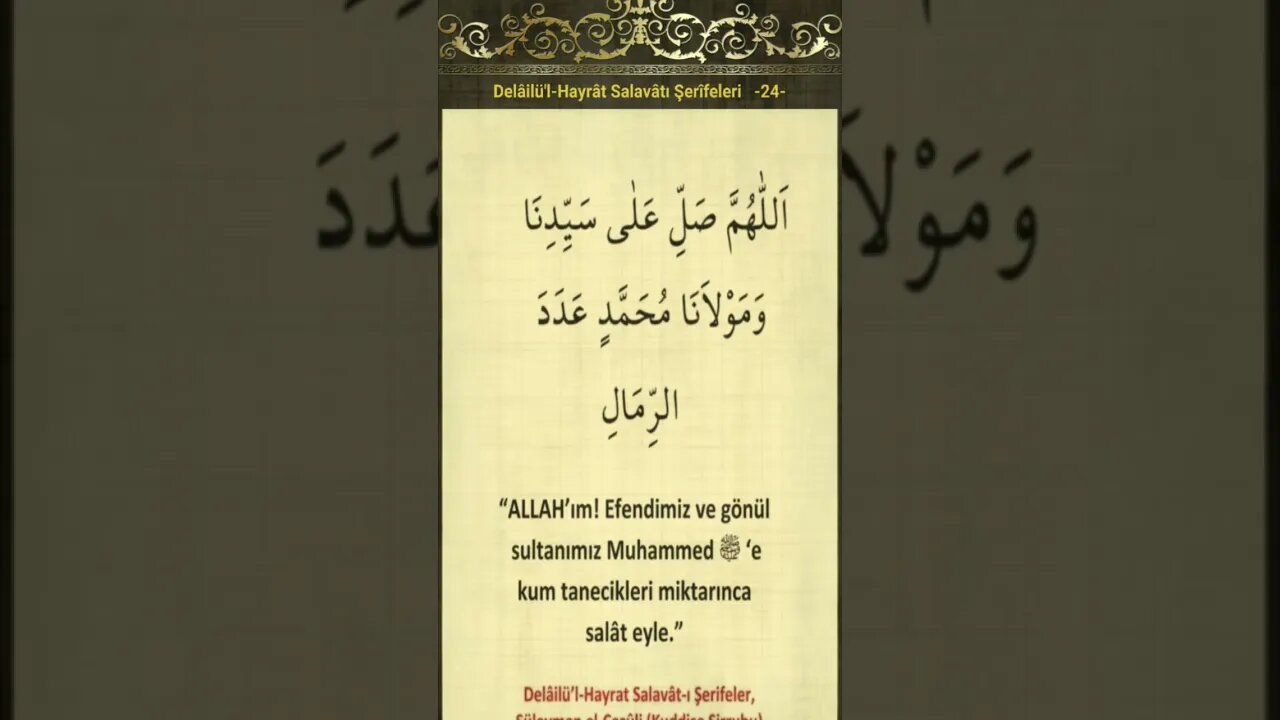 Delâilü'l-Hayrât Salavâtı Şerîfeleri -24-
اَللّٰهُمَّ صَلِّ عَلٰى سَيِّدِنَا
وَمَوْلاَنَا مُحَمَّدٍ عَدَدَ
الرِّمَالِ
“ALLAH’ım! Efendimiz ve gönül
sultanımız Muhammed ﷺ ‘e
kum tanecikleri miktarınca
salât eyle.”
Delâilü’l-Hayrat Salavât-ı Şerifeler,
Süleyman el-Cezûli (Kuddise Sirruhu)